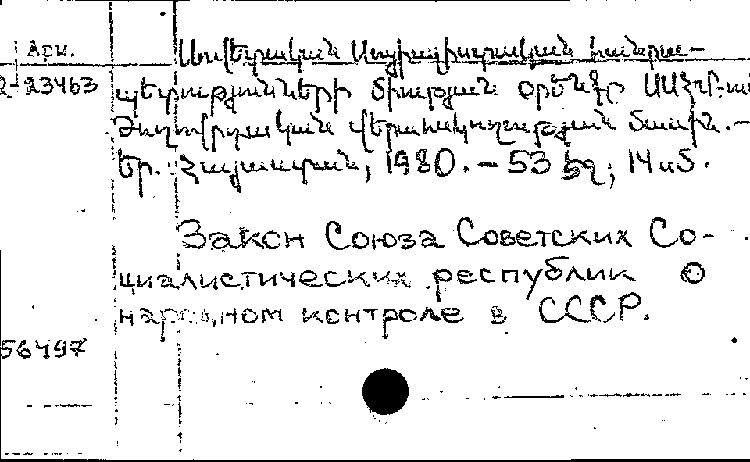 Арм.
Սովետական Սոցիալիստական հանրա-
2-23463
պետությունների Միության օրենքը ՍՍՀՄ-ում
Ժողովրդական վերահսկողության մասին. -
Եր.: Հայաստան, 1980. - 53 էջ; 14 սմ.
Закон Союза Советских Со-
циалистических республик о
народном контроле в СССР.
56497